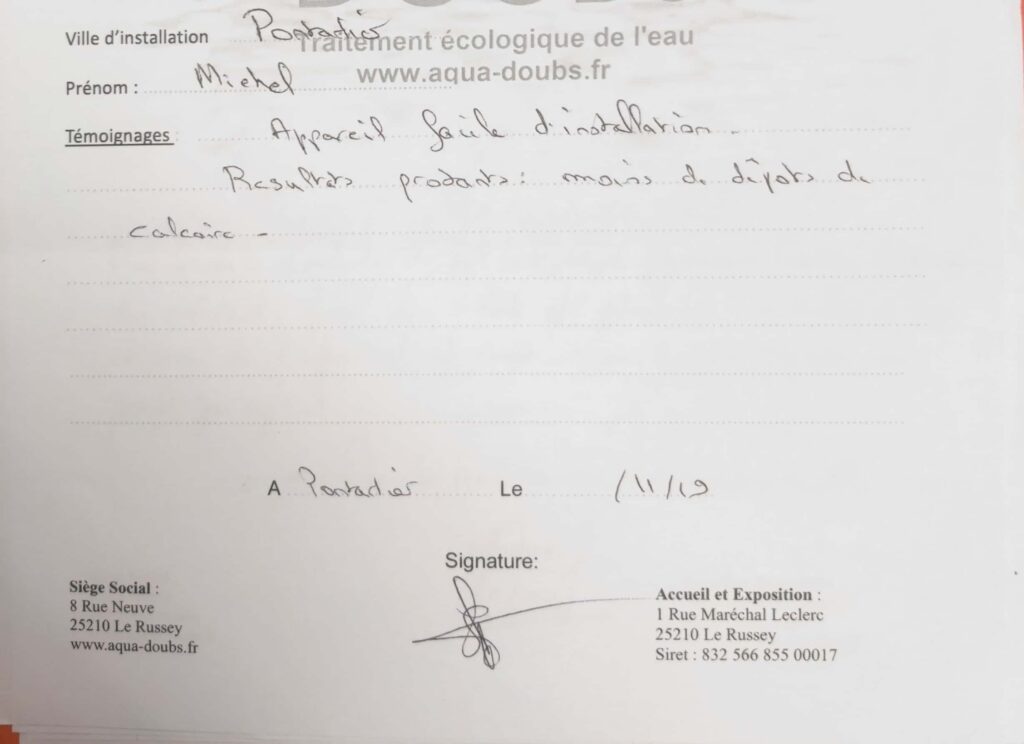 DOUBS
Traitement écologique de l'eau
www.aqua-doubs.fr
Ville d'installation Pontarlier
Prénom : Michel
Témoignages : Appareil facile d'installation -
Resultats probants : moins de dépots de
calcaire -
A Pontarlier Le /11/19
Signature:
Siège Social :
8 Rue Neuve
25210 Le Russey
www.aqua-doubs.fr
Accueil et Exposition :
1 Rue Maréchal Leclerc
25210 Le Russey
Siret : 832 566 855 00017